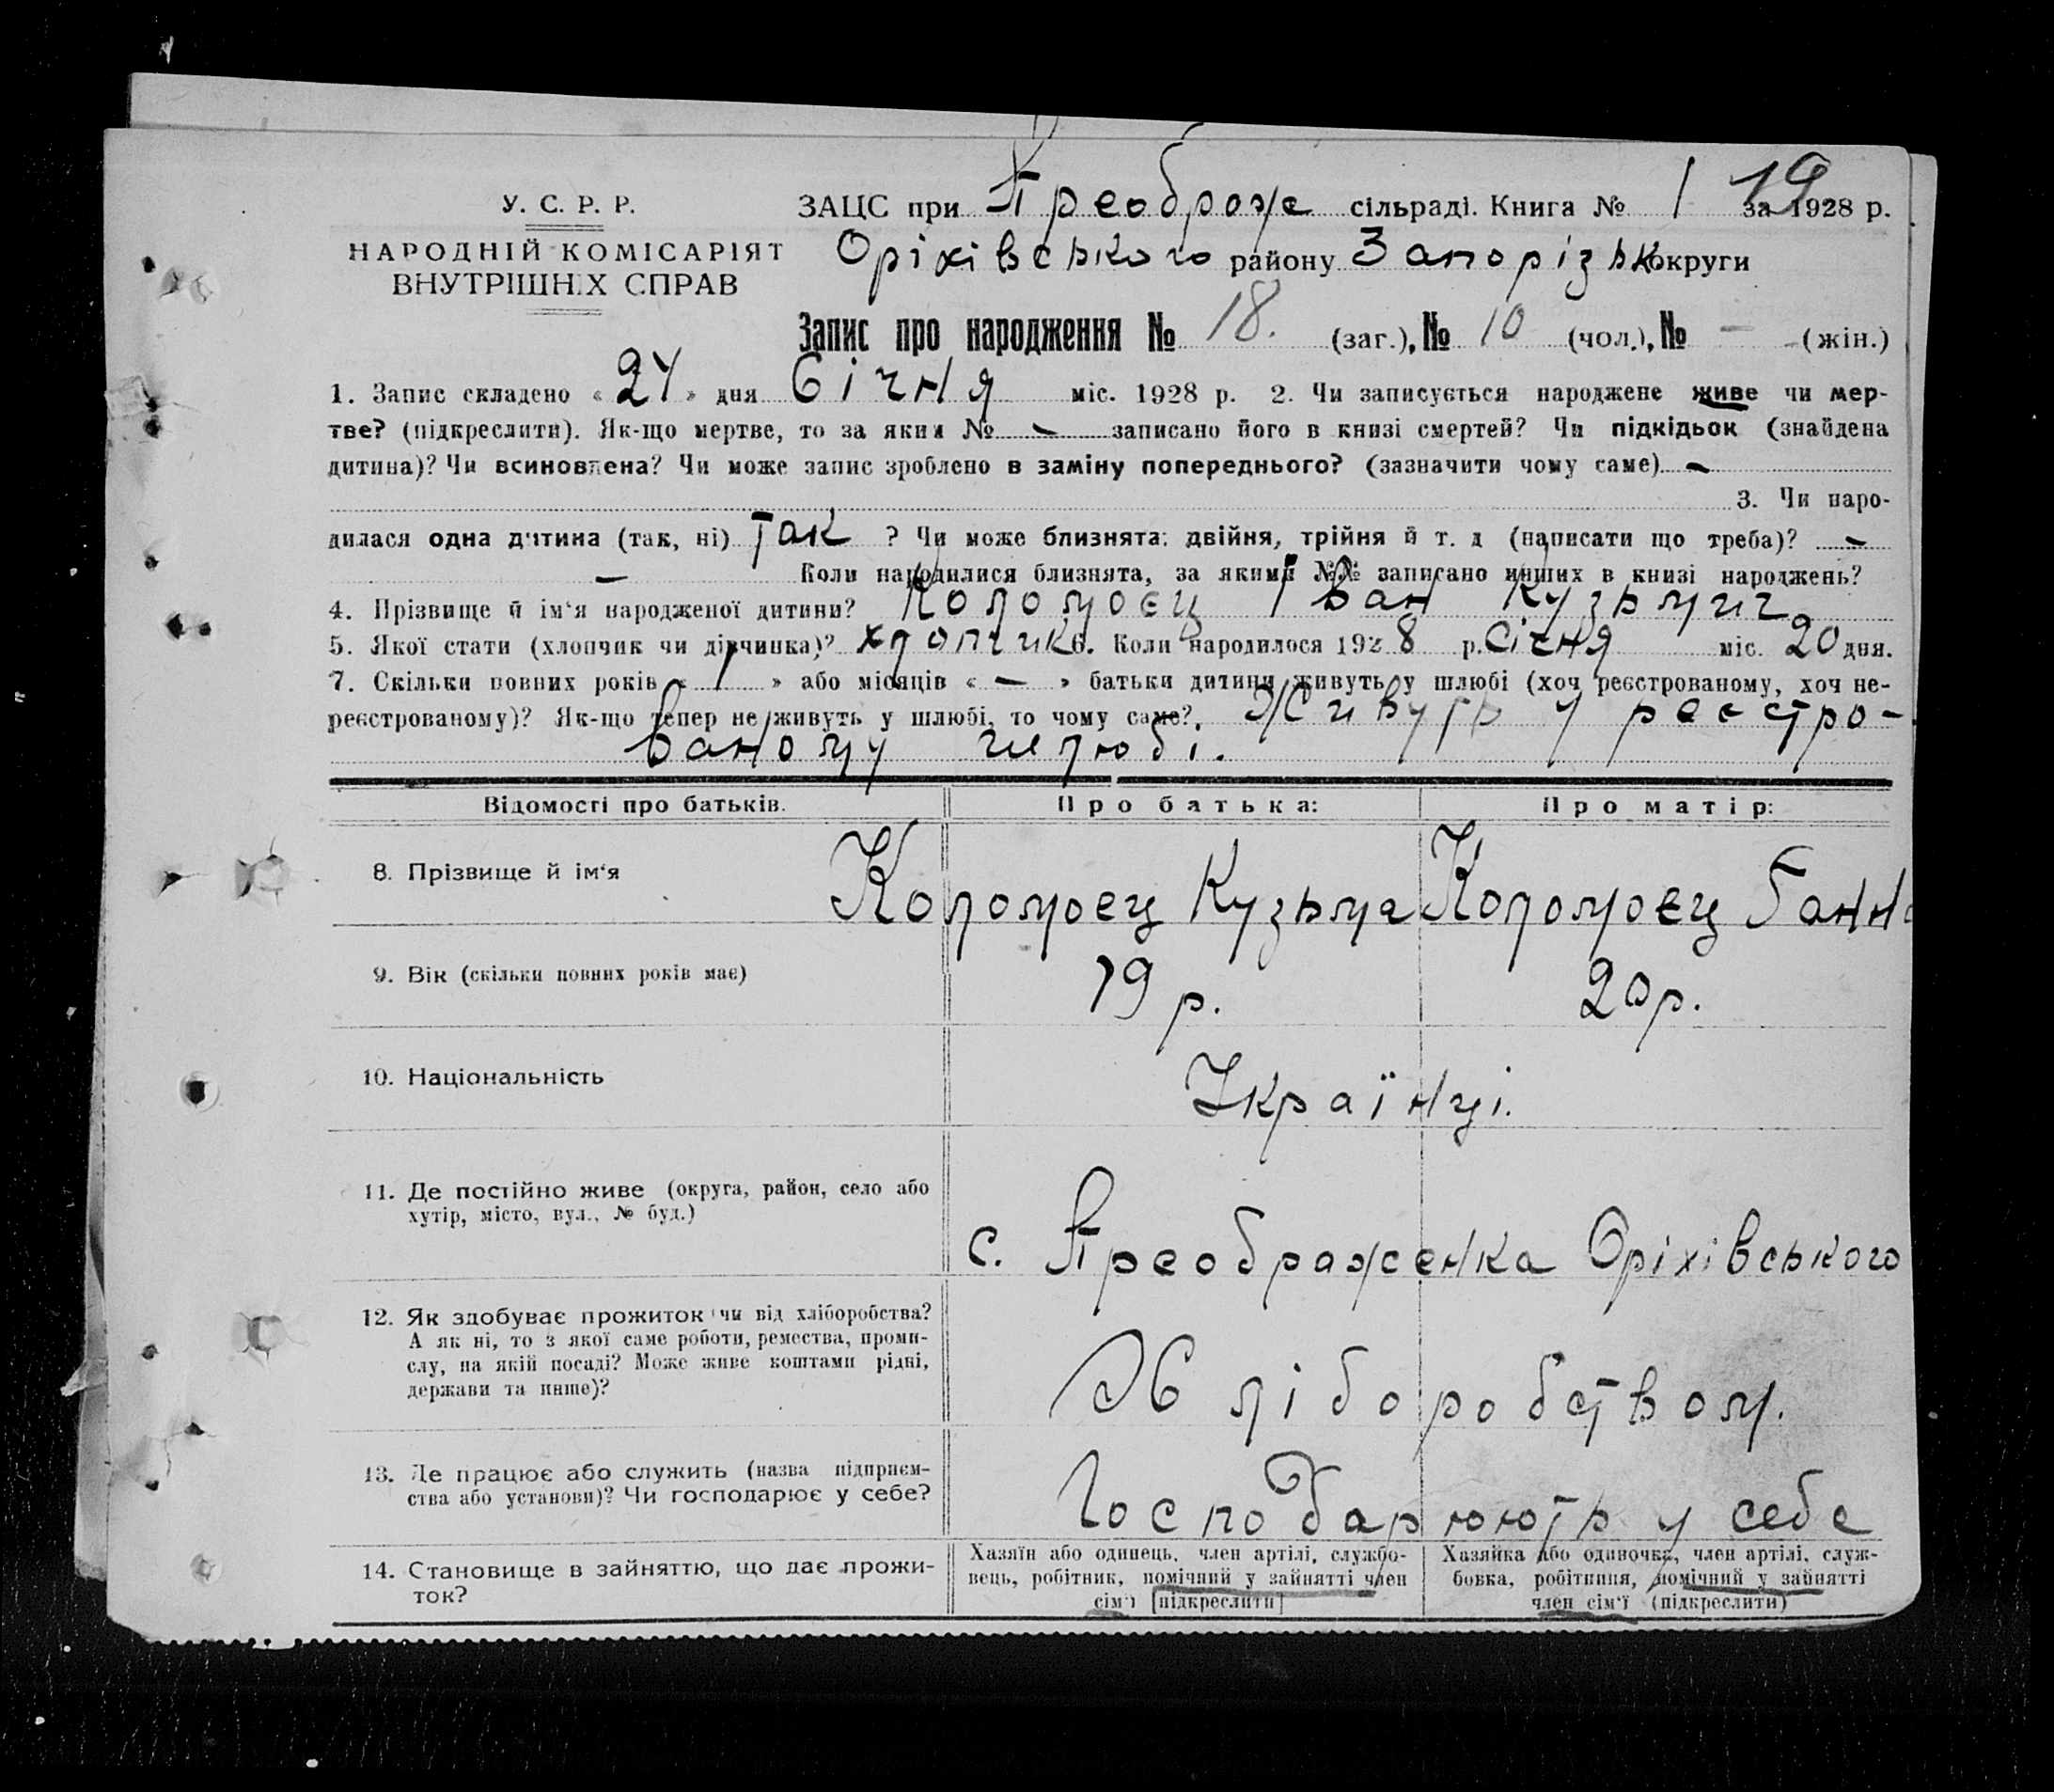 19
У. С. Р. Р.
НАРОДНІЙ КОМІСАРІЯТ
ВНУТРІШНІХ СПРАВ
ЗАЦС при Преображе сільраді. Книга № 1 за 1928 р.
Оріхівського району Запорізьк округи
Запис про народження № 18. (заг.), № 10 (чол.), № – (жін.)
1. Запис складено « 24 » дня Січня міс. 1928 р. 2. Чи записується народжене живе чи мер-
тве? (підкреслити). Як-що мертве, то за яким № – записано його в книзі смертей? Чи підкідьок (знайдена
дитина)? Чи всиновлена? Чи може запис зроблено в заміну попереднього? (зазначити чому саме) –
3. Чи наро-
дилася одна дитина (так, ні) Так ? Чи може близнята: двійня, трійня й т. д (написати що треба)? –
– Коли народилися близнята, за якими №№ записано инших в книзі народжень?
4. Прізвище й ім'я народженої дитини? Коломоєц Іван Кузьмич
5. Якої стати (хлопчик чи дівчинка)? хлопчик 6. Коли народилося 1928 р. Січня міс. 20 дня.
7. Скільки повних років « 1 » або місяців « – » батьки дитини живуть у шлюбі (хоч реєстрованому, хоч не-
реєстрованому)? Як-що тепер не живуть у шлюбі, то чому саме? Живуть у реєстро-
ваному шлюбі.
Відомості про батьків. Про батька: Про матір:
8. Прізвище й ім'я Коломоец Кузьма Коломоєц Ганна
9. Вік (скільки повних років має) 19 р. 20 р.
10. Національність Українці.
11. Де постійно живе (округа, район, село або
хутір, місто, вул., № буд.)
с. Преображенка Оріхівського
12. Як здобуває прожиток (чи від хліборобства?
А як ні, то з якої саме роботи, ремества, проми-
слу, на якій посаді? Може живе коштами рідні,
держави та инше)?
Хліборобством.
13. Де працює або служить (назва підприєм-
ства або установи)? Чи господарює у себе?
Господарюють у себе
14. Становище в зайняттю, що дає прожи-
ток?
Хазяїн або одинець, член артілі, службо-
вець, робітник, помічний у зайнятті член
сім'ї [підкреслити]
Хазяйка або одиночка, член артілі, служ-
бовка, робітниця, помічний у зайнятті
член сім'ї (підкреслити)